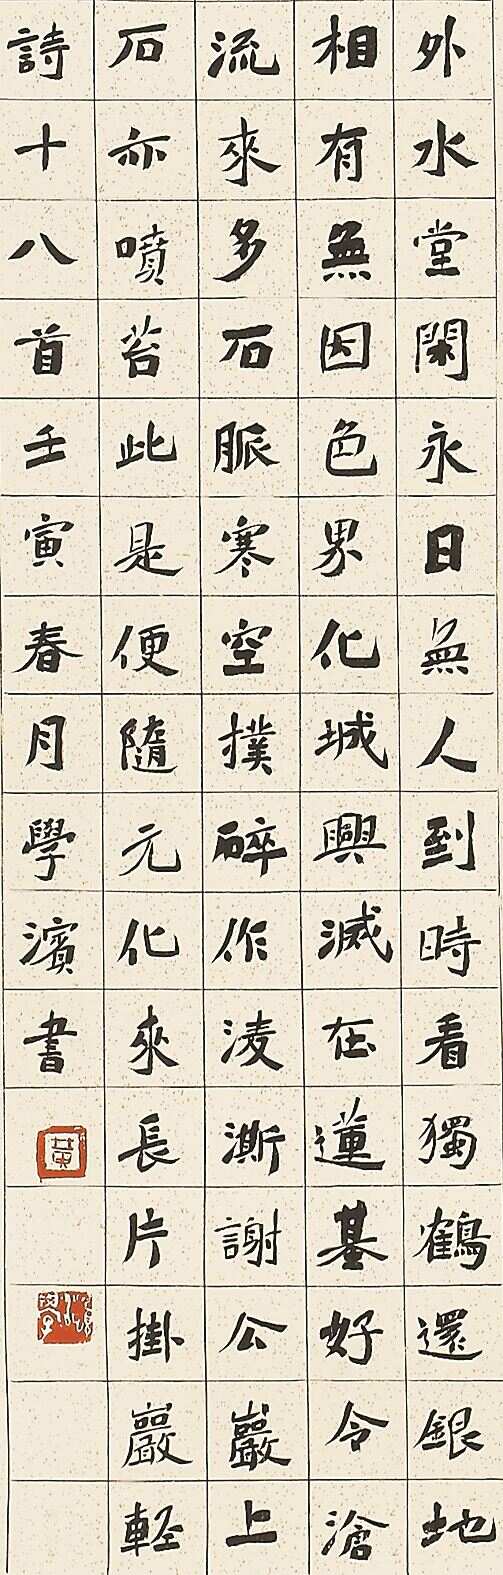 外水堂閑永日無人到時看獨鶴還銀地
相有無因色界化城興滅在蓮基好令滄
流來多石脈寒空撲碎作淩澌謝公巖上
石亦噴苔此是便隨元化來長片掛巖輕
詩十八首壬寅春月學濱書
黃